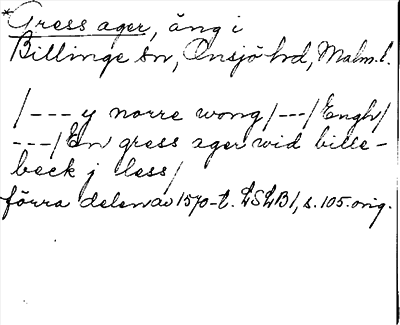 *Gress ager, äng i
Billinge sn, Onsjö hd, Malm.l.
/--- y norre wong/---/Engh/
---/En gress ager wid bille-
beck j less/
förra delen av 1570-t. LSLB1, s. 105. orig.